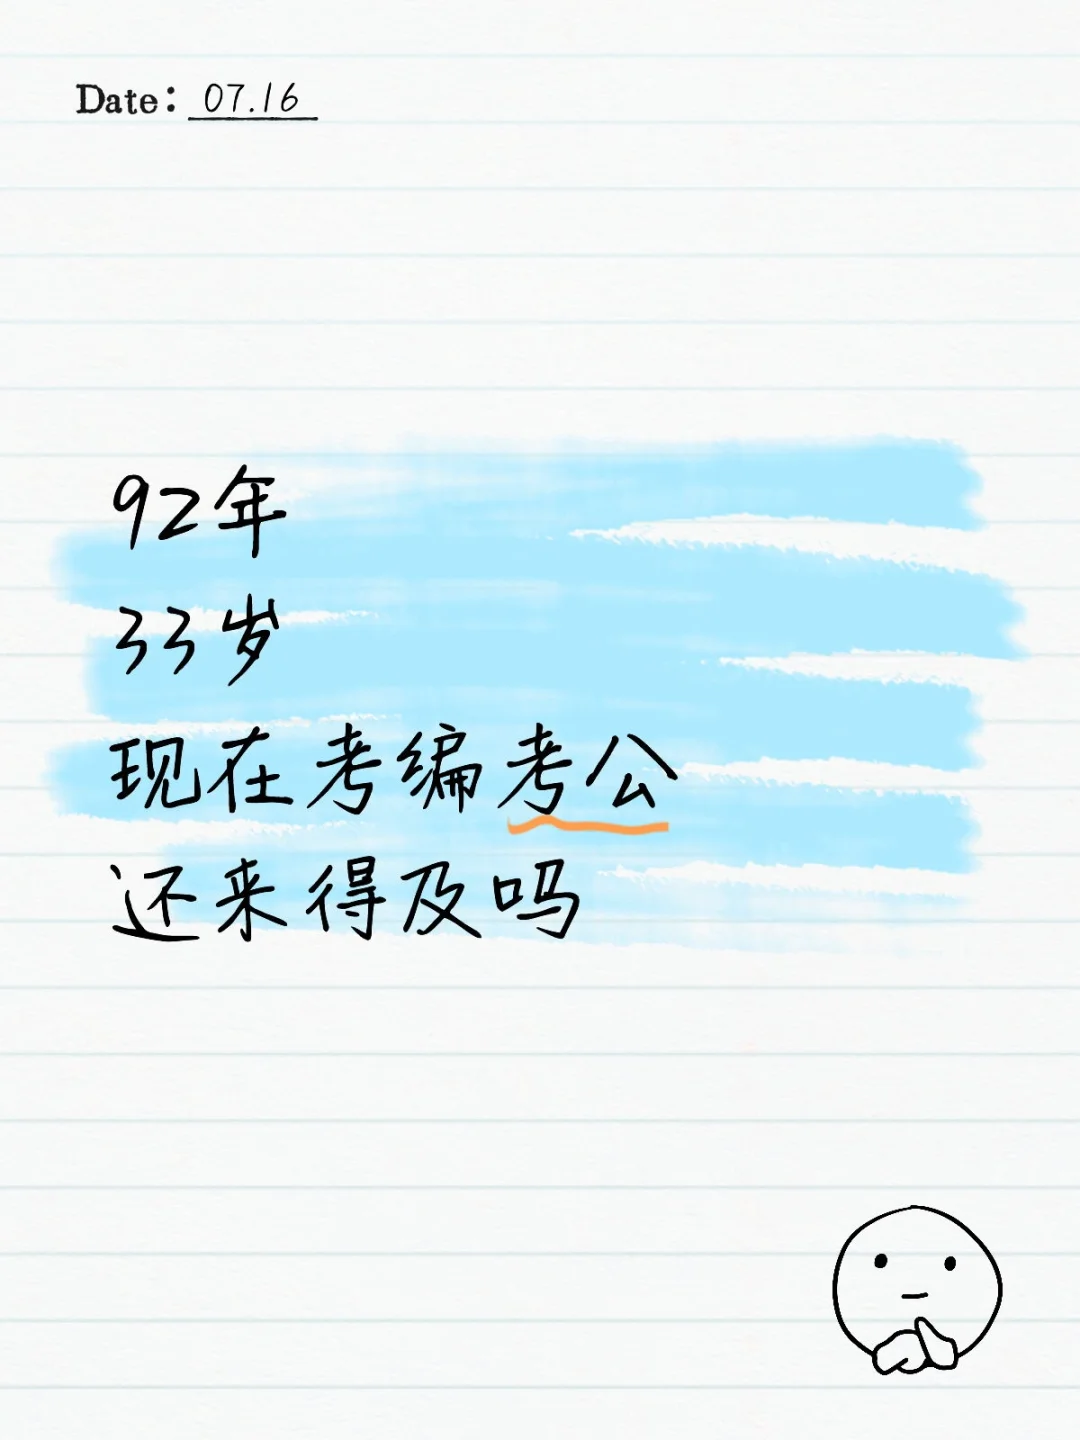 Date: 07.16
92年
33岁
现在考编考公
还来得及吗